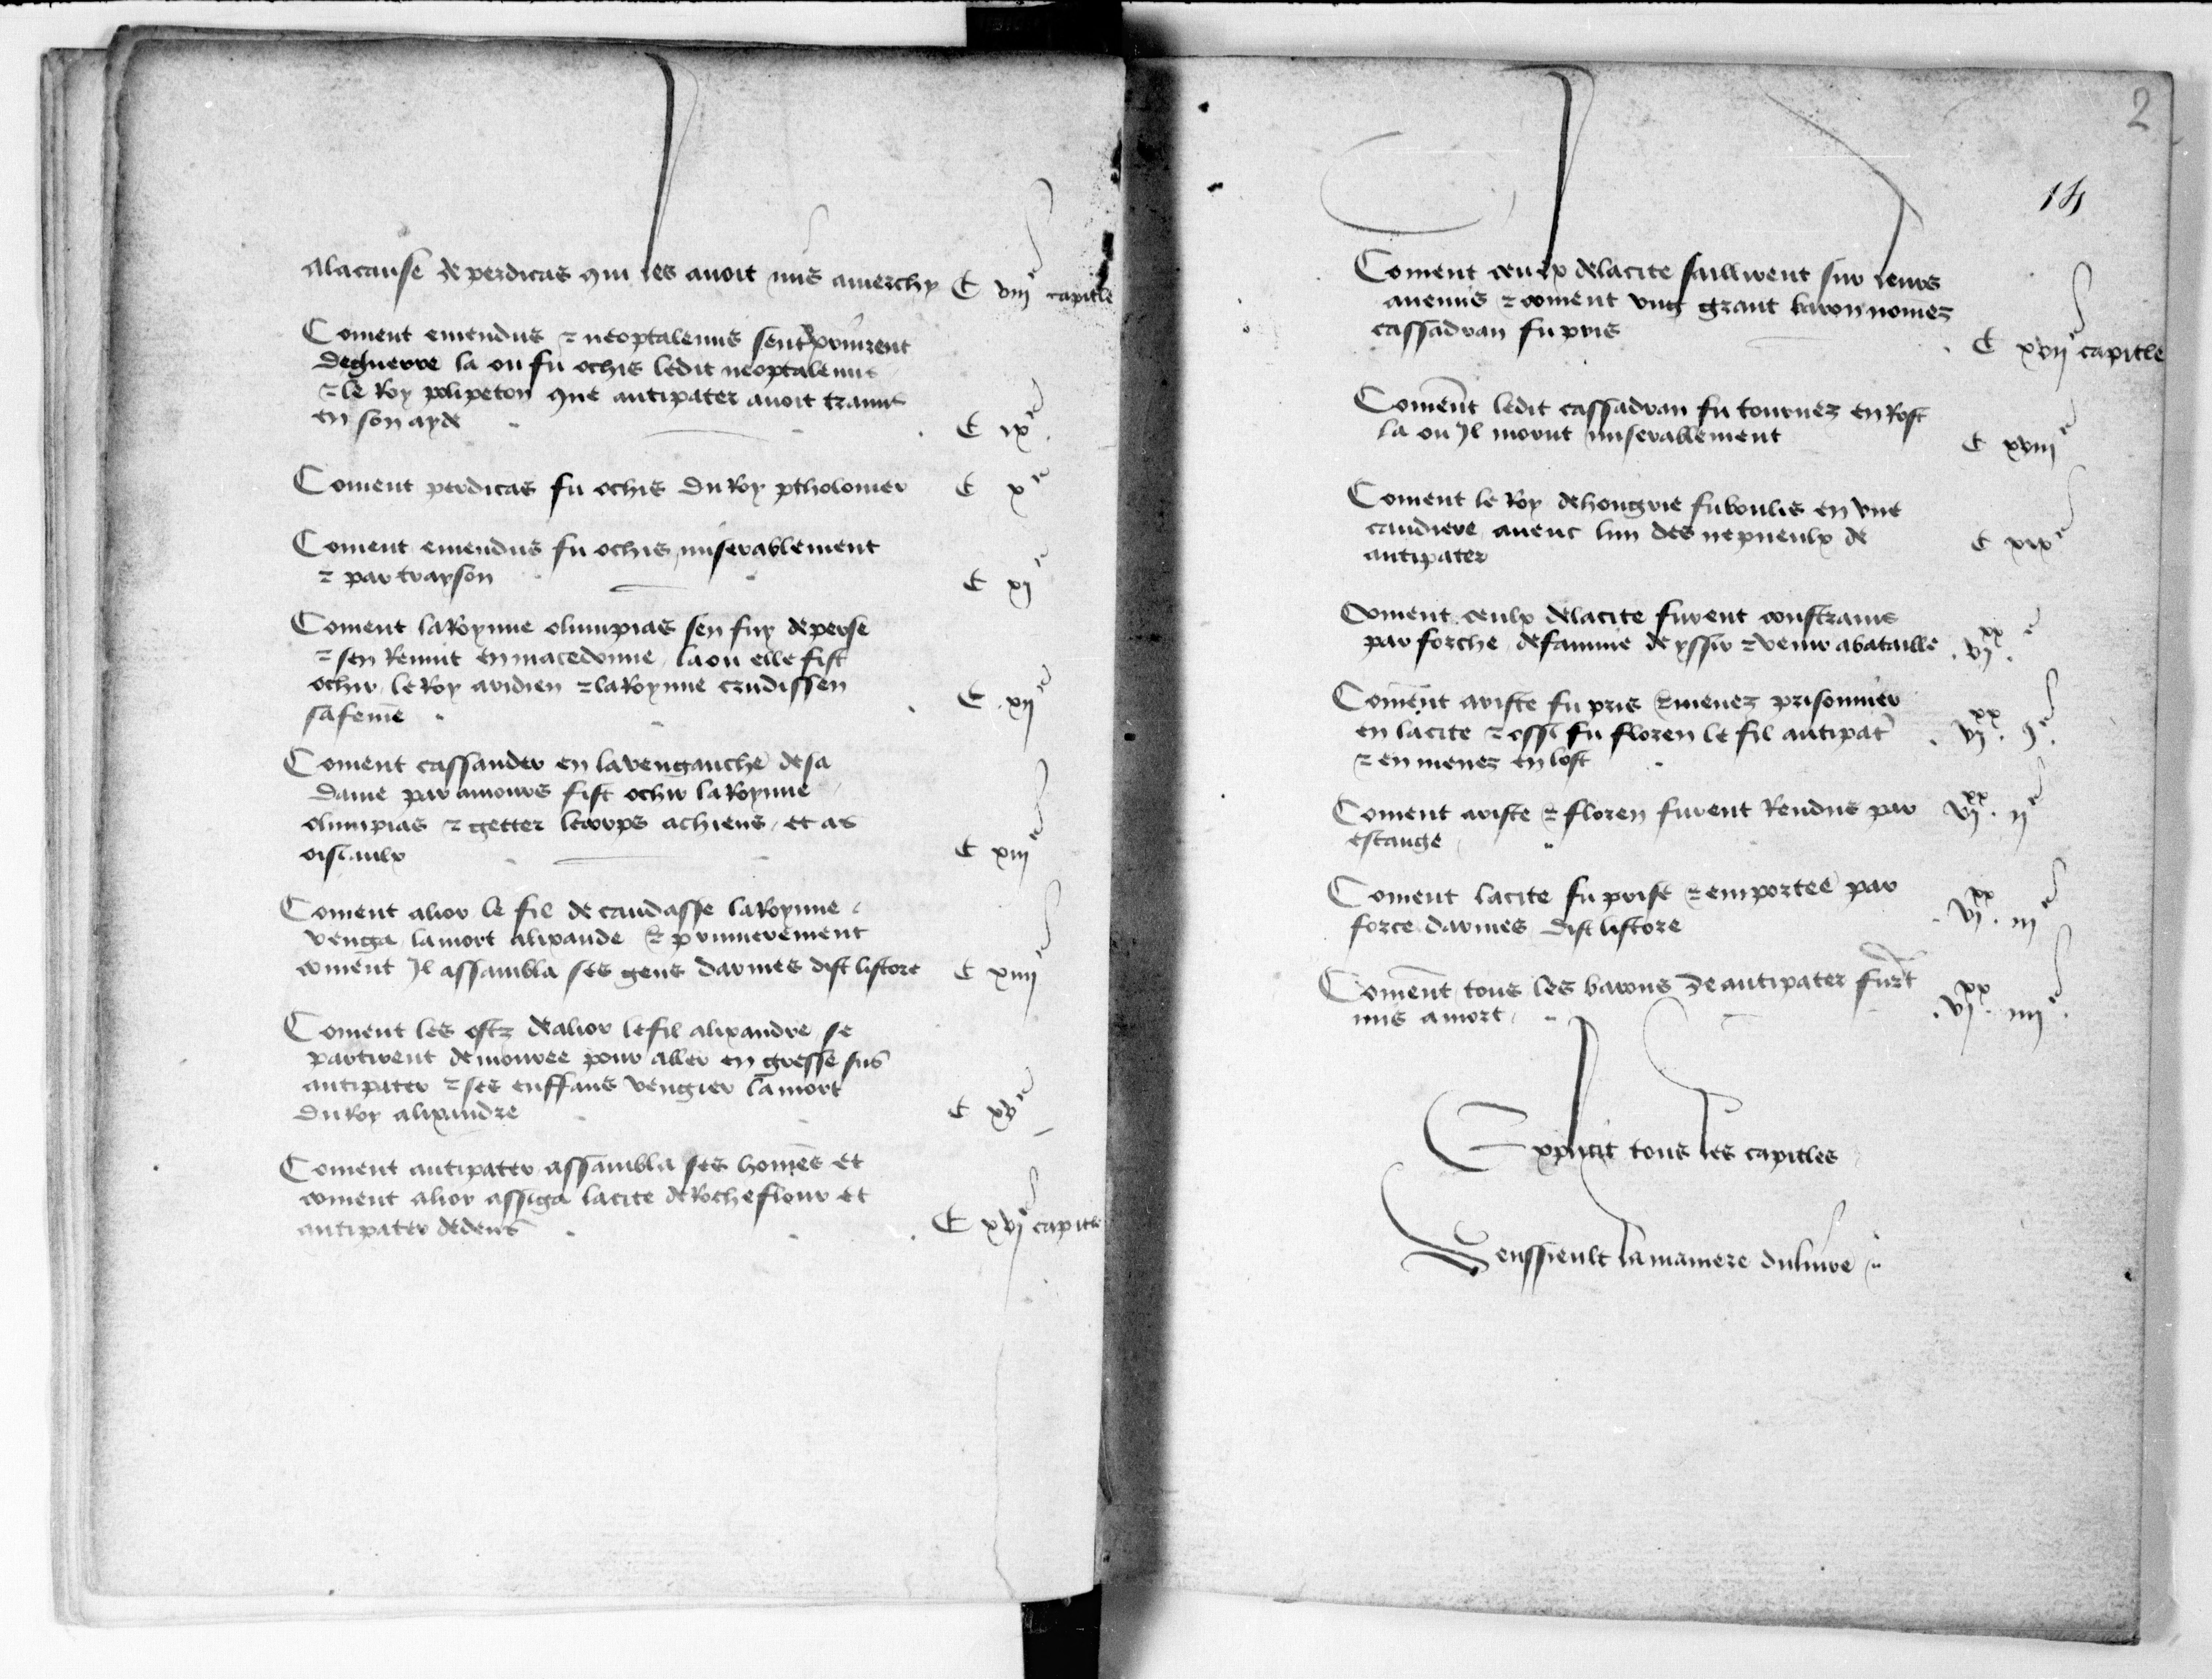 Alacause de perdicas qui les auoit mis amerchy C viij.e capitle
Coment emendus ⁊ neoptalemus
deguerre la ou fu ochis ledit neoptalemus
⁊ le Roy polipeton que antipater auoit tramis
en son ayde C ix.e
Coment perdicas fu ochis Du Roy ptholomer C x.e
Coment emendus fu ochis miserablement
⁊ par trayson C xj.e
Coment la Roynne olimpias sen fuy de perse
⁊ sen Reuint en macedonne la ou elle fist
ochir le Roy aridien ⁊ la Roynne erudissen
sa feme C xij.e
Coment cassander en la vengauche de sa
Dame par amours fist ochir la Roynne
olimpias ⁊ getter le corps achiens et as
oiseaulx C xiij.e
Coment alior le fil de candasse la Roynne
venga la mort alixande ⁊ primierement
coment Jl assambla ses gens darmes dist listore C xiiij.e
Coment les ostz de alior le fil alixandre se
partirent de mouree pour aller en gresse sus
antipater ⁊ ses enffans vengier la mort
Du Roy alixandre C xv.e
Coment antipater assambla ses homes et
coment alior assiga la cite de Rocheflour et
antipater dedens C xvj.e capitle
2
14
Coment ceulx de la cite saillirent sur leurs
anemis ⁊ coment vng grant baron nomez
cassadran fu pris C xvij.e capitle
Coment ledit cassadran fu tournez en Rost
la ou Jl morut miserablement C xviij.e
Coment le Roy de hongrie fu boulis en vne
caudiere auenc lun des nepueulx de
antipater C xix.e
Coment ceulx de la cite furent constrains
par forche de famine de yssir ⁊ venir a bataille .vj.xx e
Coment ariste fu pris ⁊ menez prisonnier
en la cite ⁊ ossi fu floren le fil antipater
⁊ en menez en lost .vj.xx j.e
Coment ariste ⁊ floren furent Rendus par
escange vj.xx ij.e
Coment la cite fu prise ⁊ emportee par
force darmes dist listore .vj.xx iij.e
Coment tous les barons de antipater furet
mis a mort .vj.xx iiij.e
Explicit tous les capitles
Senssieult la maniere du liure